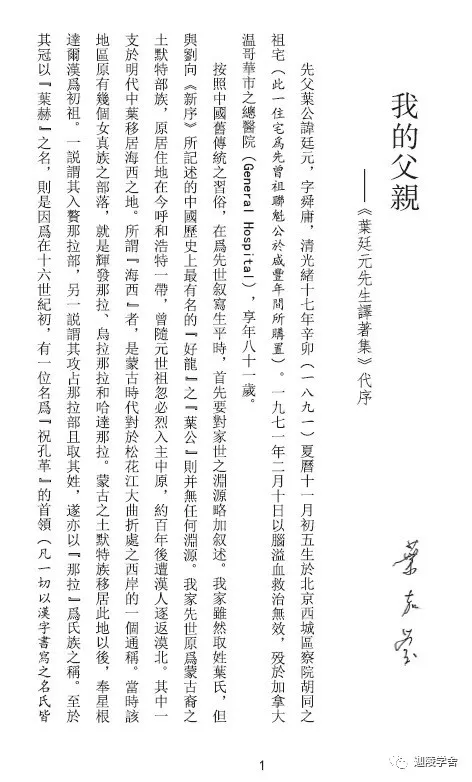 我的父親
——《葉廷元先生譯著集》代序
葉嘉瑩
先父葉公諱廷元，字舜庸，清光緒十七年辛卯（一八九一）夏曆十一月初五生於北京西城區察院胡同之
祖宅（此一住宅爲先曾祖聯魁公於咸豐年間所購置）。一九七一年二月十日以腦溢血救治無效，殁於加拿大
温哥華市之總醫院（General Hospital），享年八十一歲。
按照中國舊傳統之習俗，在爲先世叙寫生平時，首先要對家世之淵源略加叙述。我家雖然取姓葉氏，但
與劉向《新序》所記述的中國歷史上最有名的『好龍』之『葉公』則并無任何淵源。我家先世原爲蒙古裔之
土默特部族，原居住地在今呼和浩特一帶，曾隨元世祖忽必烈入主中原，約百年後遭漢人逐返漠北。其中一
支於明代中葉移居海西之地。所謂『海西』者，是蒙古時代對於松花江大曲折處之西岸的一個通稱。當時該
地區原有幾個女真族之部落，就是輝發那拉、烏拉那拉和哈達那拉。蒙古之土默特族移居此地以後，奉星根
達爾漢爲初祖。一説謂其入贅那拉部，另一説謂其攻占那拉部且取其姓，遂亦以『那拉』爲氏族之稱。至於
其冠以『葉赫』之名，則是因爲在十六世紀初，有一位名爲『祝孔革』的首領（凡一切以漢字書寫之名氏皆
1
迦陵学舍